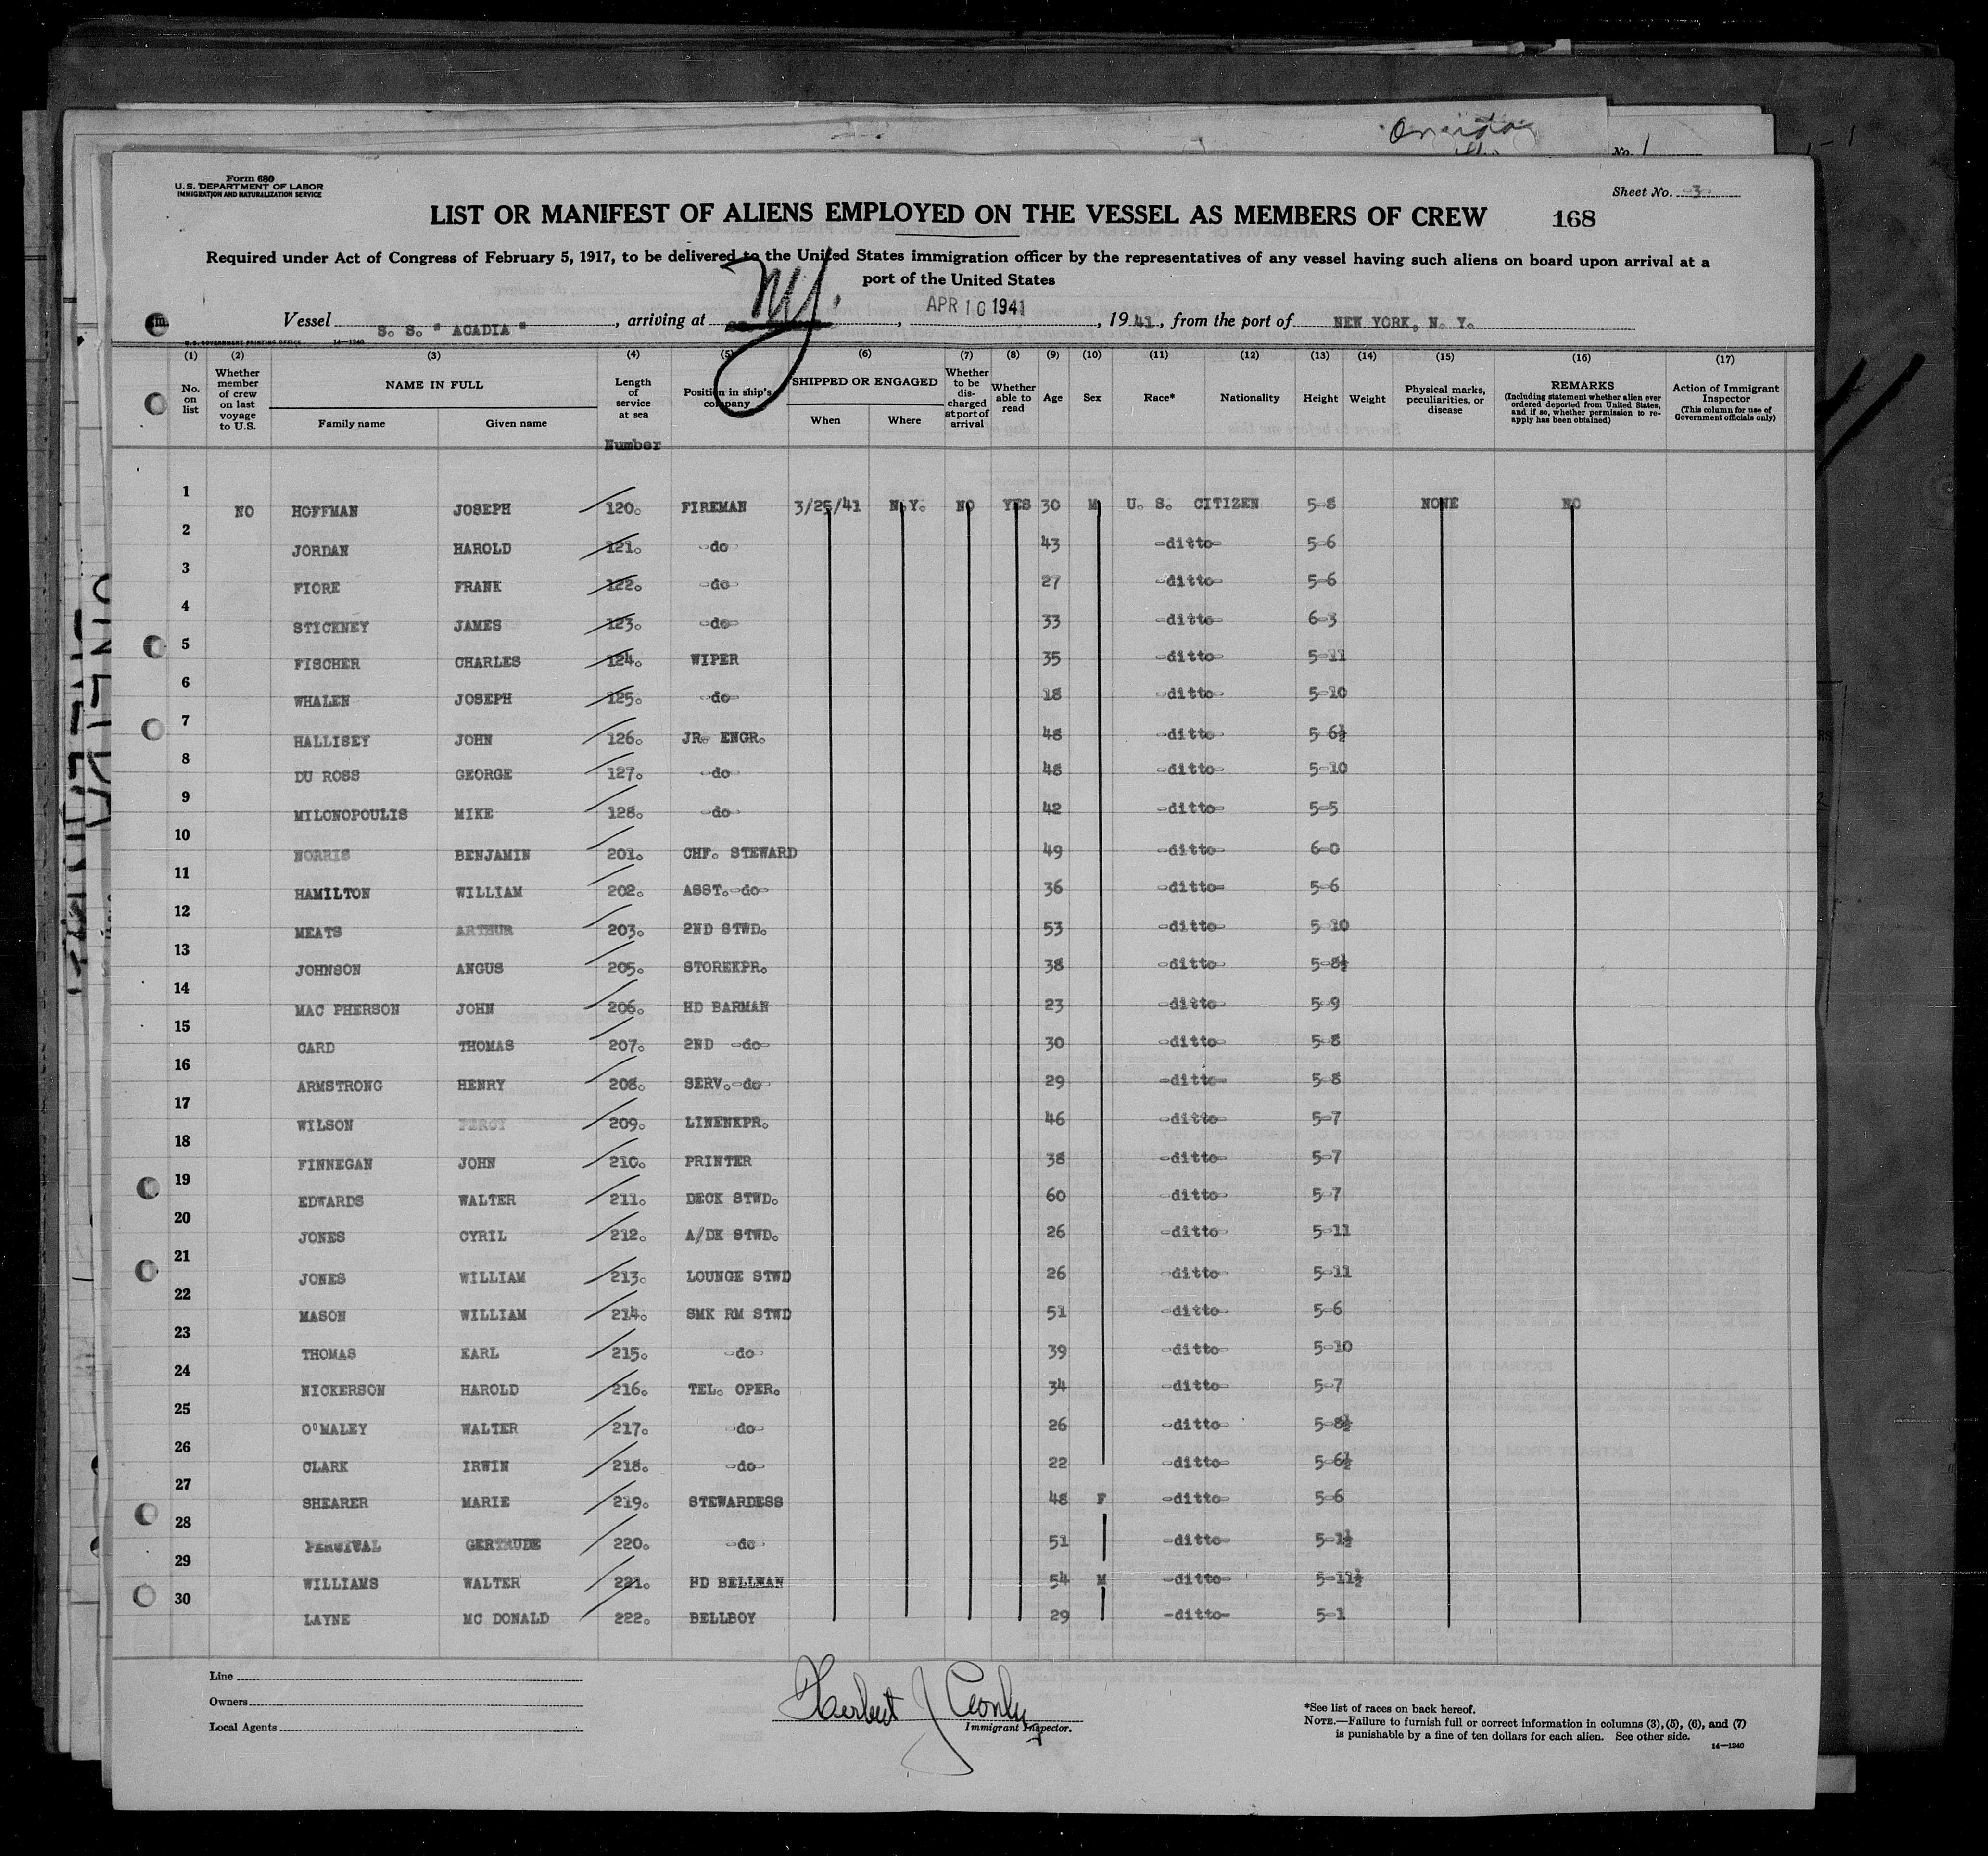 Form 680
U. S. DEPARTMENT OF LABOR
IMMIGRATION AND NATURALIZATION SERVICE
No. 1
Sheet No. -3-
LIST OR MANIFEST OF ALIENS EMPLOYED ON THE VESSEL AS MEMBERS OF CREW 168
Required under Act of Congress of February 5, 1917, to be delivered to the United States immigration officer by the representatives of any vessel having such aliens on board upon arrival at a
port of the United States
Vessel S. S. " ACADIA ", arriving at N.Y., APR 10 1941, 1941, from the port of NEW YORK, N. Y.
U. S. GOVERNMENT PRINTING OFFICE 14—1240
(1) (2) (3) (4) (5) (6) (7) (8) (9) (10) (11) (12) (13) (14) (15) (16) (17)
No. on list
Whether member of crew on last voyage to U.S.
NAME IN FULL
Family name Given name
Length of service at sea
Number
Position in ship's company
SHIPPED OR ENGAGED
When Where
Whether to be discharged at port of arrival
Whether able to read
Age
Sex
Race*
Nationality
Height
Weight
Physical marks, peculiarities, or disease
REMARKS
(Including statement whether alien ever ordered deported from United States, and if so, whether permission to reapply has been obtained)
Action of Immigrant Inspector
(This column for use of Government officials only)
1 NO HOFFMAN JOSEPH 120. FIREMAN 3/25/41 N.Y. NO YES 30 M U. S. CITIZEN 5-8 NONE NO
2 JORDAN HAROLD 121. -do- 43 -ditto- 5-6
3 FIORE FRANK 122. -do- 27 -ditto- 5-6
4 STICKNEY JAMES 123. -do- 33 -ditto- 6-3
5 FISCHER CHARLES 124. WIPER 35 -ditto- 5-11
6 WHALEN JOSEPH 125. -do- 18 -ditto- 5-10
7 HALLISEY JOHN 126. JR. ENGR. 48 -ditto- 5-6½
8 DU ROSS GEORGE 127. -do- 48 -ditto- 5-10
9 MILONOPOULIS MIKE 128. -do- 42 -ditto- 5-5
10 NORRIS BENJAMIN 201. CHF. STEWARD 49 -ditto- 6-0
11 HAMILTON WILLIAM 202. ASST.-do- 36 -ditto- 5-6
12 MEATS ARTHUR 203. 2ND STWD. 53 -ditto- 5-10
13 JOHNSON ANGUS 205. STOREKPR. 38 -ditto- 5-8½
14 MAC PHERSON JOHN 206. HD BARMAN 23 -ditto- 5-9
15 CARD THOMAS 207. 2ND -do- 30 -ditto- 5-8
16 ARMSTRONG HENRY 208. SERV.-do- 29 -ditto- 5-8
17 WILSON PERCY 209. LINENKPR. 46 -ditto- 5-7
18 FINNEGAN JOHN 210. PRINTER 38 -ditto- 5-7
19 EDWARDS WALTER 211. DECK STWD. 60 -ditto- 5-7
20 JONES CYRIL 212. A/DK STWD. 26 -ditto- 5-11
21 JONES WILLIAM 213. LOUNGE STWD 26 -ditto- 5-11
22 MASON WILLIAM 214. SMK RM STWD 51 -ditto- 5-6
23 THOMAS EARL 215. -do- 39 -ditto- 5-10
24 NICKERSON HAROLD 216. TEL. OPER. 34 -ditto- 5-7
25 O'MALEY WALTER 217. -do- 26 -ditto- 5-8½
26 CLARK IRWIN 218. -do- 22 -ditto- 5-6½
27 SHEARER MARIE 219. STEWARDESS 48 F -ditto- 5-6
28 PERCIVAL GERTRUDE 220. -do- 51 -ditto- 5-1½
29 WILLIAMS WALTER 221. HD BELLMAN 54 M -ditto- 5-11½
30 LAYNE MC DONALD 222. BELLBOY 29 -ditto- 5-1
Line
Owners
Local Agents
Herbert J
Immigrant Inspector.
*See list of races on back hereof.
NOTE.—Failure to furnish full or correct information in columns (3), (5), (6), and (7)
is punishable by a fine of ten dollars for each alien. See other side.
14—1240